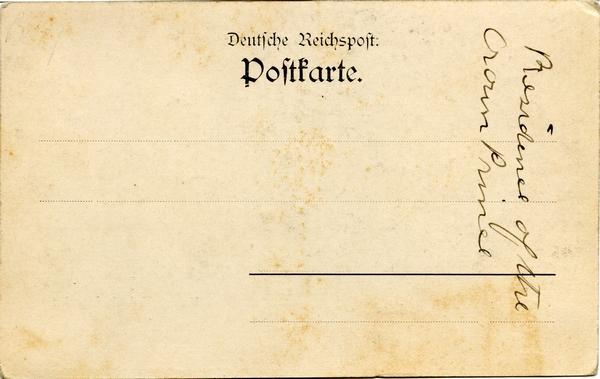 Deutsche Reichspost.
Postkarte.
Residence of the
Crown Prince